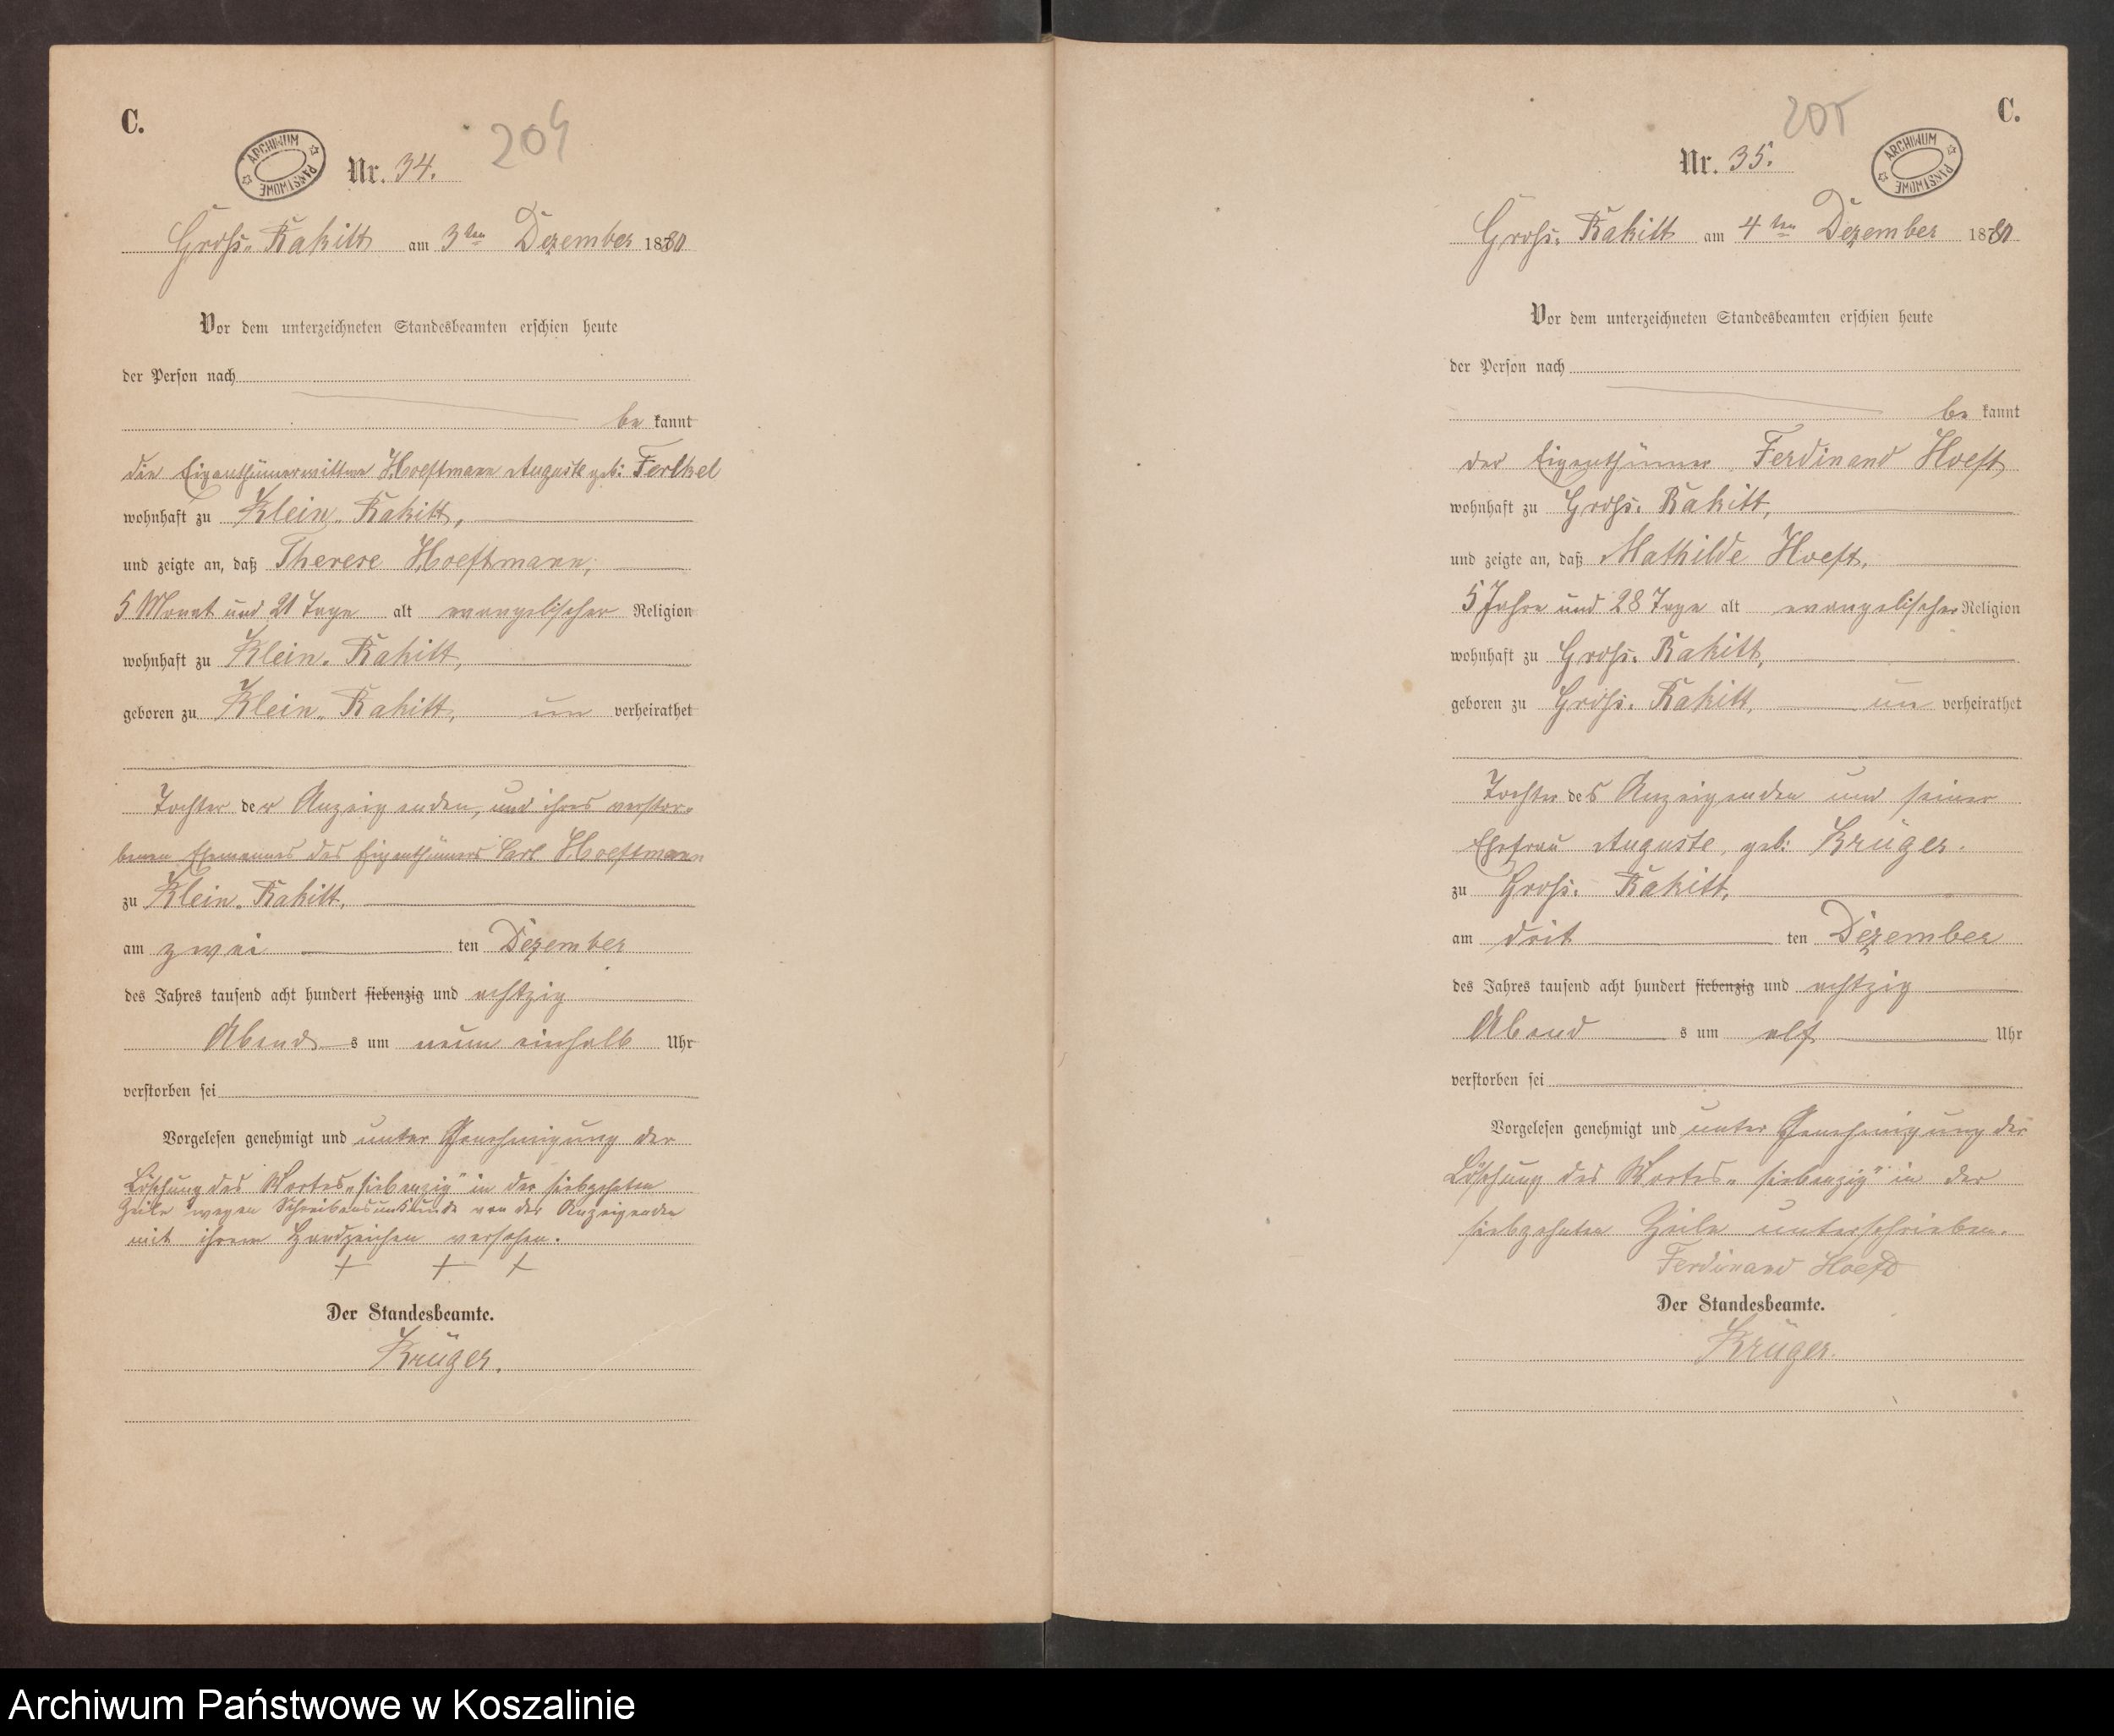 C.
204
ARCHIWUM PAŃSTWOWE
Nr. 34.
Gross-Rakitt am 3ten Dezember 1880
Vor dem unterzeichneten Standesbeamten erschien heute
der Person nach
be kannt
die Eigenthümerwittwe Hoeftmann Auguste geb:
wohnhaft zu Klein-Rakitt,
und zeigte an, daß Therese Hoeftmann,
5 Monat und 21 Tage alt evangelischer Religion
wohnhaft zu Klein-Rakitt,
geboren zu Klein-Rakitt, un verheirathet
Tochter der Anzeigenden, und ihres verstor-
benen Ehemannes des Eigenthümers Carl Hoeftmann
zu Klein-Rakitt,
am zwei ten Dezember
des Jahres tausend acht hundert siebenzig und achtzig
Abends s um neun einhalb Uhr
verstorben sei
Vorgelesen genehmigt und unter Genehmigung der
Löschung des Wortes „siebenzig" in der siebzehnten
Zeile wegen Schreibensunkunde von der Anzeigenden
mit ihrem Handzeichen versehen.
+ + +
Der Standesbeamte.
Krüger.
C.
205
ARCHIWUM PAŃSTWOWE
Nr. 35.
Gross-Rakitt am 4ten Dezember 1880
Vor dem unterzeichneten Standesbeamten erschien heute
der Person nach
be kannt
der Eigenthümer Ferdinand Hoeft
wohnhaft zu Gross-Rakitt,
und zeigte an, daß Mathilde Hoeft,
5 Jahre und 28 Tage alt evangelischer Religion
wohnhaft zu Gross-Rakitt,
geboren zu Gross-Rakitt, un verheirathet
Tochter des Anzeigenden und seiner
Ehefrau Auguste, geb: Krüger.
zu Gross-Rakitt,
am drit ten Dezember
des Jahres tausend acht hundert siebenzig und achtzig
Abend s um elf Uhr
verstorben sei
Vorgelesen genehmigt und unter Genehmigung der
Löschung des Wortes „siebenzig" in der
siebzehnten Zeile unterschrieben.
Ferdinand Hoeft
Der Standesbeamte.
Krüger.
Archiwum Państwowe w Koszalinie